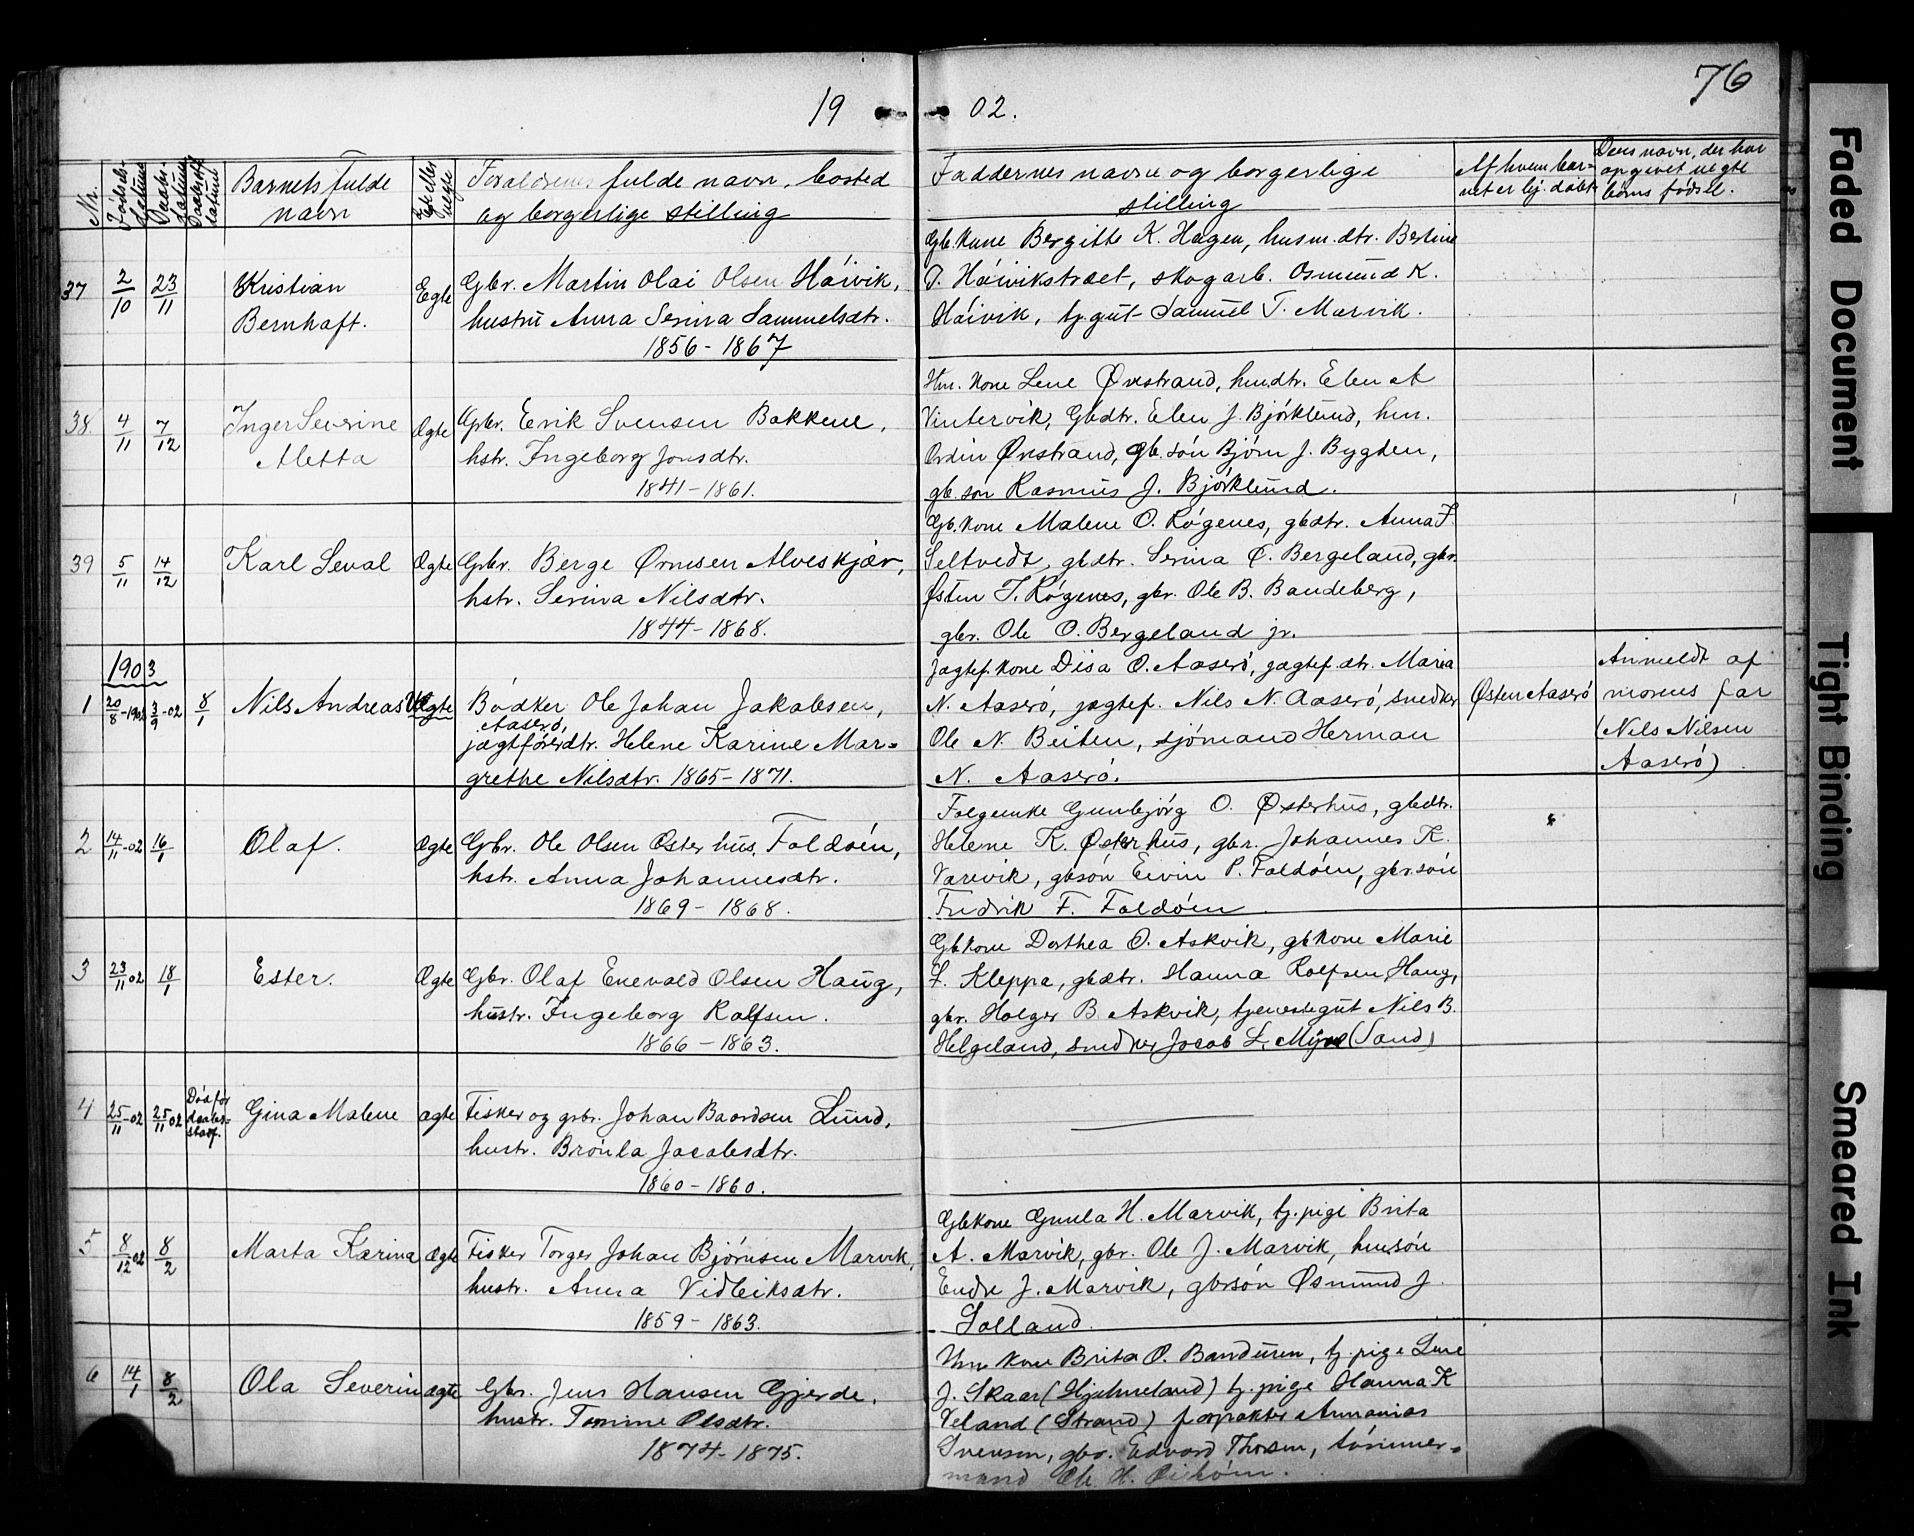 76
19 02.
Nr.
Fødsels-
datum
Daabs-
datum
Barnets fulde
navn
Egte eller
uegte
Forældrenes fulde navn, bosted
og borgerlige stilling
Faddernes navne og borgerlige
stilling
Af hvem bar-
net er hj. døbt
Dens navn, der har
opgevet uegte
børns fødsel.
37
2/10
23/11
Kristian
Bernhaft.
Egte
Gbr. Martin Olai Olsen Höivik,
hustru Anna Serina Samuelsdtr.
1856-1867
Gb.kone Bergitte K. Hagen, husm.dtr. Bertine
T. Höivikstræet, skogarb. Osmund K.
Höivik, tj.gut Samuel T. Marvik.
38.
4/11
7/12
Inger Severine
Aletta
Ægte
Gbr. Erik Svensen Bakkene,
hstr. Ingeborg Jonsdtr.
1841-1861.
Hm. kone Lene Øvrstrand, hmdtr. Elen
Vintervik, Gbdtr. Elen J. Björklund, hm.
Ordin Øvrstrand, gb.sön Bjørn J. Bygden,
gb.sön Rasmus J. Björklund.
39
5/11
14/12
Karl Seval
Ægte
Gbr. Berge Ørnsen Alveskjær,
hstr. Serina Nilsdtr.
1844-1868.
Gb.kone Malene O. Rögenes, gbdtr. Anna F.
Seltvedt, gbdtr. Serina O. Bergeland, gbr.
Østen T. Rögenes, gbr. Ole B. Bandeberg,
gbr. Ole O. Bergeland jr.
1903
1
20/8-1902
3/9-02
8/1
Nils Andreas
Uægte
Bödker Ole Johan Jakobsen,
Aaserö,
jægtförerdtr. Helene Karine Mar-
grethe Nilsdtr. 1865-1871.
Jagtef.kone Disa O. Aaserö, jagtef.dtr. Maria
N. Aaserö, jagtef. Nils N. Aaserö, snedker
Ole N. Beiten, sjömand Herman
N. Aaserö.
Østen Aaserö
Anmeldt af
morens far
(Nils Nilsen
Aaserö)
2
14/11-02
16/1
Olaf.
Ægte
Gbr. Ole Olsen Østerhus, Foldöen,
hstr. Anna Johannesdtr.
1869-1868.
Folgeenke Gunbjörg O. Østerhus, gbdtr.
Helene K. Østerhus, gbr. Johannes K.
Varevik, gbsön Eivin P. Foldöen, gbrsön
Fredrik F. Foldöen
3
23/11 02
18/1
Ester.
Ægte
Gbr. Olaf Enevald Olsen Haug,
hustr. Ingeborg Rolfsen.
1866-1863.
Gbkone Dorthea O. Askvik, gbkone Marie
L. Kleppa, gbdtr. Hanna Rolfsen Haug,
gbr. Holger B. Askvik, tjenestegut Nils B.
Helgeland, snedker Jacob L. Myre (Sand)
4
25/11-02
25/11 02
Död for
daabs-
stadf.
Gina Malene
ægte
Fisker og gbr. Johan Baardsen Lund,
hustr. Brönla Jacobsdtr.
1860-1860.
5
8/12 02
8/2
Marta Karina
Ægte
Fisker Torger Johan Bjørnsen Marvik,
hustr. Anna Vidleiksdtr.
1859-1863.
Gbkone Gunla H. Marvik, tj.pige Brita
A. Marvik, gbr. Ole J. Marvik, hmsön
Endre J. Marvik, gbrsön Øsmund J.
Solland.
6
14/1
8/2
Ola Severin
ægte
Gbr. Jens Hansen Gjerde,
hustr. Tomine Olsdtr.
1874-1875.
Hm kone Brita O. Banduren, tj.pige Lene
J. Skaar (Hjelmeland) tj.pige Hanna K
Veland (Strand) forpakter Annanias
Svensen, gbr. Edvard Thorsen, tömmer-
mand Ole H.
Faded Document
Tight Binding
Smeared Ink